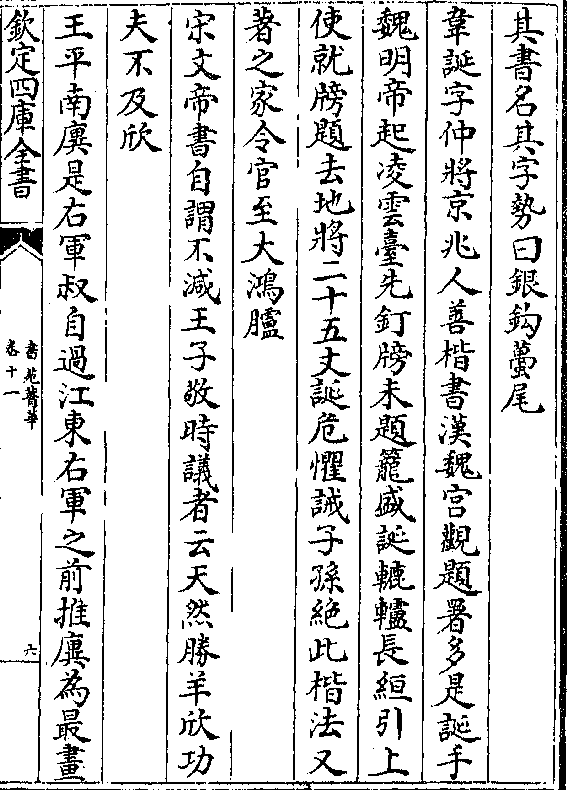 其書名其字勢曰銀鈎蠆尾
韋誕字仲將京兆人善楷書漢魏宮觀題署多是誕手
魏明帝起凌雲臺先釘牓未題籠盛誕轆轤長絙引上
使就牓題去地將二十五丈誕危懼誡子孫絶此楷法又
著之家令官至大鴻臚
宋文帝書自謂不減王子敬時議者云天然勝羊欣功
夫不及欣
王平南廙是右軍叔自過江東右軍之前推廙為最畫
欽定四庫全書
書苑菁華
卷十一
六